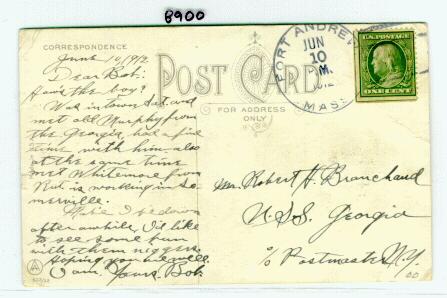 8900
CORRESPONDENCE
POST CARD
FOR ADDRESS
ONLY
FORT ANDREWS
JUN
10
M.
MASS
U.S. POSTAGE
ONE CENT
June 10, 1912
Dear Bob:
How's the boy?
Was in town Sat. and
met old Murphy from
the Georgia, had a fine
time with him also
at the same time
met Whitemore from
is working in So
merville.
I be down
after awhile, I'd like
to see some fun
with them niggers.
Hoping you're well.
I am, Yours Bob.
Mr. Robert H. Branchaud
U.S.S. Georgia
c/o Postmaster N.Y.
A